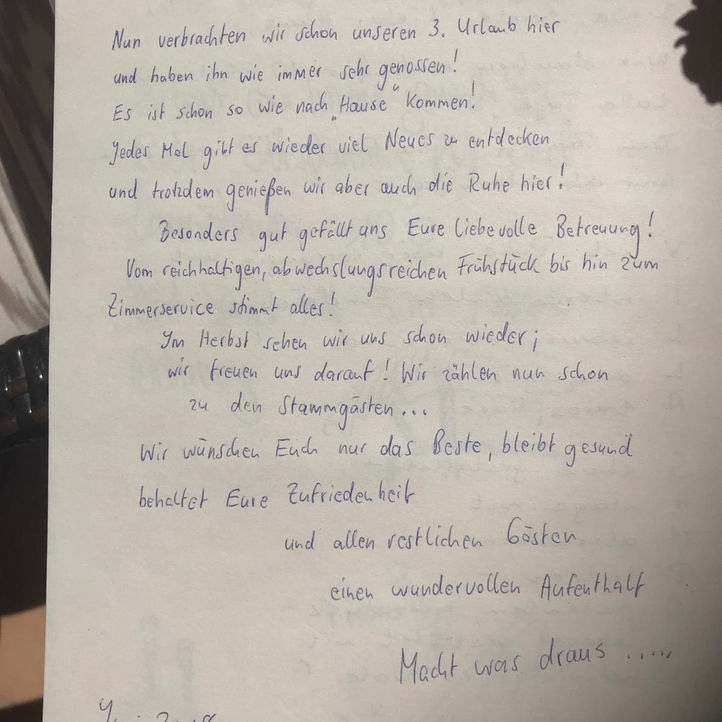 Nun verbrachten wir schon unseren 3. Urlaub hier
und haben ihn wie immer sehr genossen!
Es ist schon so wie nach „Hause" kommen!
Jedes Mal gibt es wieder viel Neues zu entdecken
und trotzdem genießen wir aber auch die Ruhe hier!
Besonders gut gefällt uns Eure liebevolle Betreuung!
Vom reichhaltigen, abwechslungsreichen Frühstück bis hin zum
Zimmerservice stimmt alles!
Im Herbst sehen wir uns schon wieder;
wir freuen uns darauf! Wir zählen nun schon
zu den Stammgästen...
Wir wünschen Euch nur das Beste, bleibt gesund
behaltet Eure Zufriedenheit
und allen restlichen Gästen
einen wundervollen Aufenthalt
Macht was draus .....